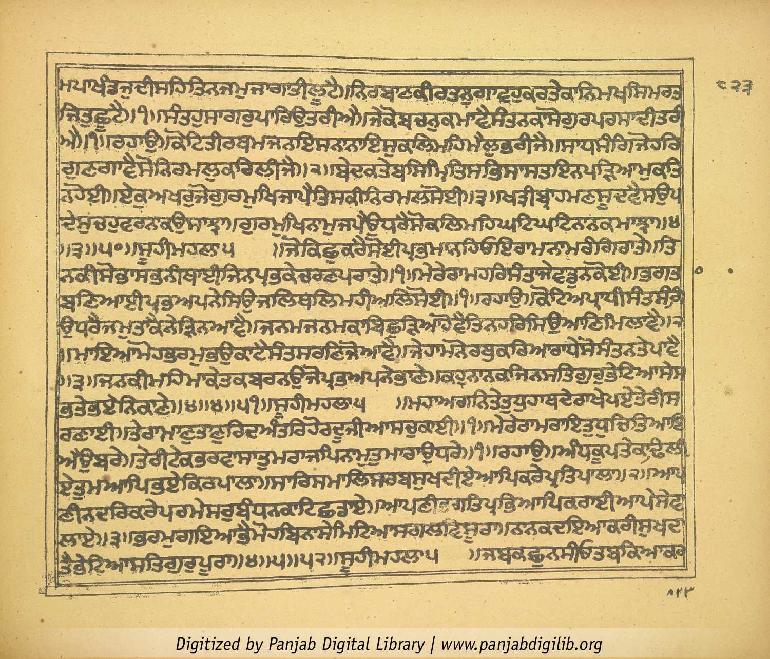 ਮਪਾਖੰਡਜੁਦੀਸਹਿਤਿਨਜਮੁਜਾਗਾਤੀਲੂਟੈ॥ਨਿਰਬਾਣਕੀਰਤਨੁਗਾਵਹੁਕਰਤੇਕਾਨਿਮਖਸਿਮਰਤ
ਜਿਤੁਛੂਟੈ॥੧॥ਸੰਤਹੁਸਾਗਰੁਪਾਰਿਉਤਰੀਐ॥ਜੇਕੋਬਚਨੁਕਮਾਵੈਸੰਤਨਕਾਸੋਗੁਰਪਰਸਾਦੀਤਰੀ
ਐ॥੧॥ਰਹਾਉ॥ਕੋਟਿਤੀਰਥਮਜਨਇਸਨਾਨਾਇਸੁਕਲਿਮਹਿਮੈਲੁਭਰੀਜੈ॥ਸਾਧਸੰਗਿਜੋਹਰਿ
ਗੁਣਗਾਵੈਸੋਨਿਰਮਲੁਕਰਿਲੀਜੈ॥੨॥ਬੇਦਕਤੇਬਸਿਮ੍ਰਿਤਿਸਭਿਸਾਸਤਇਨਪੜਿਆਮੁਕਤਿ
ਨਹੋਈ॥ਏਕੁਅਖਰੁਜੋਗੁਰਮੁਖਿਜਾਪੈਤਿਸਕੀਨਿਰਮਲਸੋਈ॥੩॥ਖਤ੍ਰੀਬ੍ਰਾਹਮਣਸੂਦਵੈਸਉਪ
ਦੇਸੁਚਹੁਵਰਨਾਕਉਸਾਝਾ॥ਗੁਰਮੁਖਿਨਾਮੁਜਪੈਉਧਰੈਸੋਕਲਿਮਹਿਘਟਿਘਟਿਨਾਨਕਮਾਝਾ॥੪
॥੩॥੫੦॥ਸੂਹੀਮਹਲਾ੫ ॥ਜੋਕਿਛੁਕਰੈਸੋਈਪ੍ਰਭਮਾਨਹਿਓਇਰਾਮਨਾਮਰੰਗਿਰਾਤੇ॥ਤਿ
ਨਕੀਸੋਭਾਸਭਨੀਥਾਈਜਿਨਪ੍ਰਭਕੇਚਰਣਪਰਾਤੇ॥੧॥ਮੇਰੇਰਾਮਹਰਿਸੰਤਾਜੇਵਡੁਨਕੋਈ॥ਭਗਤਾ
ਬਣਿਆਈਪ੍ਰਭਅਪਨੇਸਿਉਜਲਿਥਲਿਮਹੀਅਲਿਸੋਈ॥੧॥ਰਹਾਉ॥ਕੋਟਿਅਪ੍ਰਾਧੀਸੰਤਸੰਗਿ
ਉਧਰੈਜਮੁਤਾਕੈਨੇੜਿਨਆਵੈ॥ਜਨਮਜਨਮਕਾਬਿਛੁੜਿਆਹੋਵੈਤਿਨਹਰਿਸਿਉਆਣਿਮਿਲਾਵੈ॥੨
॥ਮਾਇਆਮੋਹਭਰਮੁਭਉਕਾਟੈਸੰਤਸਰਣਿਜੋਆਵੈ॥ਜੇਹਾਮਨੋਰਥੁਕਰਿਆਰਾਧੇਸੋਸੰਤਨਤੇਪਾਵੈ
॥੩॥ਜਨਕੀਮਹਿਮਾਕੇਤਕਬਰਨਉਜੋਪ੍ਰਭਅਪਨੇਭਾਣੇ॥ਕਹੁਨਾਨਕਜਿਨਸਤਿਗੁਰੁਭੇਟਿਆਸੇਸ
ਭਤੇਭਏਨਿਕਾਣੇ॥੪॥੪॥੫੧॥ਸੂਹੀਮਹਲਾ੫ ॥ਮਹਾਅਗਨਿਤੇਤੁਧੁਹਾਥਦੇਰਾਖੇਪਏਤੇਰੀਸ
ਰਣਾਈ॥ਤੇਰਾਮਾਣੁਤਾਣੁਰਿਦਅੰਤਰਿਹੋਰਦੂਜੀਆਸਚੁਕਾਈ॥੧॥ਮੇਰੇਰਾਮਰਾਇਤੁਧੁਚਿਤਿਆਇ
ਐਉਬਰੇ॥ਤੇਰੀਟੇਕਭਰਵਾਸਾਤੁਮਰਾਜਪਿਨਾਮੁਤੁਮਾਰਾਉਧਰੇ॥੧॥ਰਹਾਉ॥ਅੰਧਕੂਪਤੇਕਾਢਿਲੀ
ਏਤੁਮਆਪਿਭਏਕਿਰਪਾਲਾ॥ਸਾਰਿਸਮਾਲਿਸਰਬਸੁਖਦੀਏਆਪਿਕਰੇਪ੍ਰਤਿਪਾਲਾ॥੨॥ਆਪ
ਣੀਨਦਰਿਕਰੇਪਰਮੇਸਰੁਬੰਧਨਕਾਟਿਛਡਾਏ॥ਆਪਣੀਭਗਤਿਪ੍ਰਭਿਆਪਿਕਰਾਈਆਪੇਸੇਵਾ
ਲਾਏ॥੩॥ਭਰਮੁਗਇਆਭੈਮੋਹਬਿਨਾਸੇਮਿਟਿਆਸਗਲਵਿਸੂਰਾ॥ਨਾਨਕਦਇਆਕਰੀਸੁਖਦਾ
ਤੈਭੇਟਿਆਸਤਿਗੁਰੁਪੂਰਾ॥੪॥੫॥੫੨॥ਸੂਹੀਮਹਲਾ੫ ॥ਜਬਕਛੁਨਸੀਓਤਬਕਿਆਕ
੮੨੩
Digitized by Panjab Digital Library | www.panjabdigilib.org